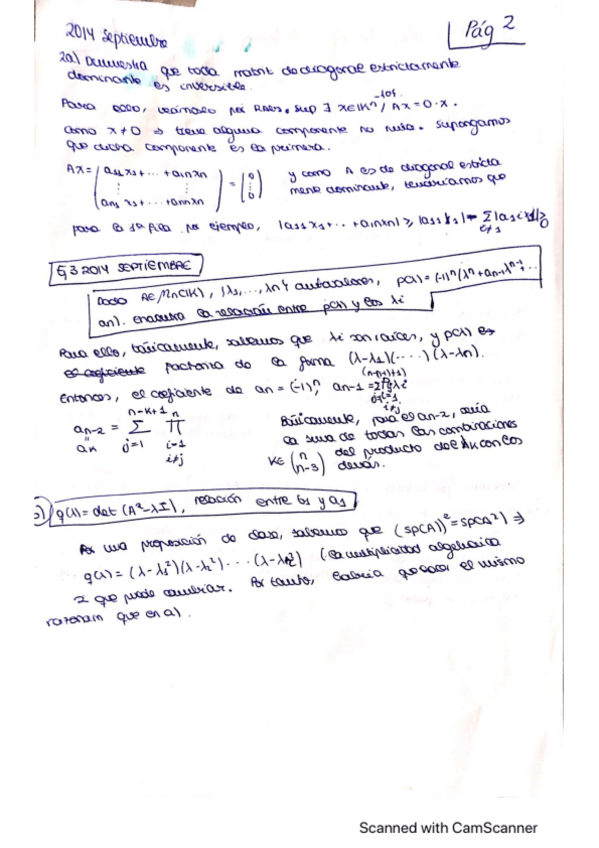 2014 Septiembre
Pág 2
2a) Demuestra que toda matriz de diagonal estrictamente
dominante es inversible.
Para ello, veámoslo por RAbs. Sup ∃ x∈K^n-{0} / Ax=0·x.
Como x≠0 ⇒ tiene alguna componente no nula. Supongamos
que dicha componente es la primera.
Ax = (a11x1+...+a1nxn ⋮ an1x1+...+annxn) = (0 ⋮ 0) y como A es de diagonal estricta
mente dominante, tendríamos que
para la 1ª fila por ejemplo, |a11x1+...+a1nxn| ≥ |a11x1| - Σ i≠1
Ej 3 2014 SEPTIEMBRE
Dado A∈Mn(K), {λ1,...,λn} autovalores, p(λ)=(-1)^n(λ^n+an-1λ^n-1+...
an). Encuentra la relación entre p(λ) y los λi
Para ello, básicamente, sabemos que λi son raíces, y p(λ) es
factoriza de la forma (λ-λ1)(....)(λ-λn).
Entonces, el coeficiente de an=(-1)^n, an-1=
an-2 = Σ j=1 n-k+1 ∏ i=1 i≠j n
ak
Básicamente, para el an-2, sería
la suma de todas las combinaciones
del producto de λk con los
demás.
K∈ (n n-3)
q(λ)=det(A²-λI), relación entre bs y as
Por una proposición de clase, sabemos que (Sp(A))²=Sp(A²) ⇒
q(λ)=(λ-λ1²)(λ-λ2²)...(λ-λn²) (la multiplicidad algebraica
que puede cambiar. Por tanto, habría que el mismo
que en a).
Scanned with CamScanner